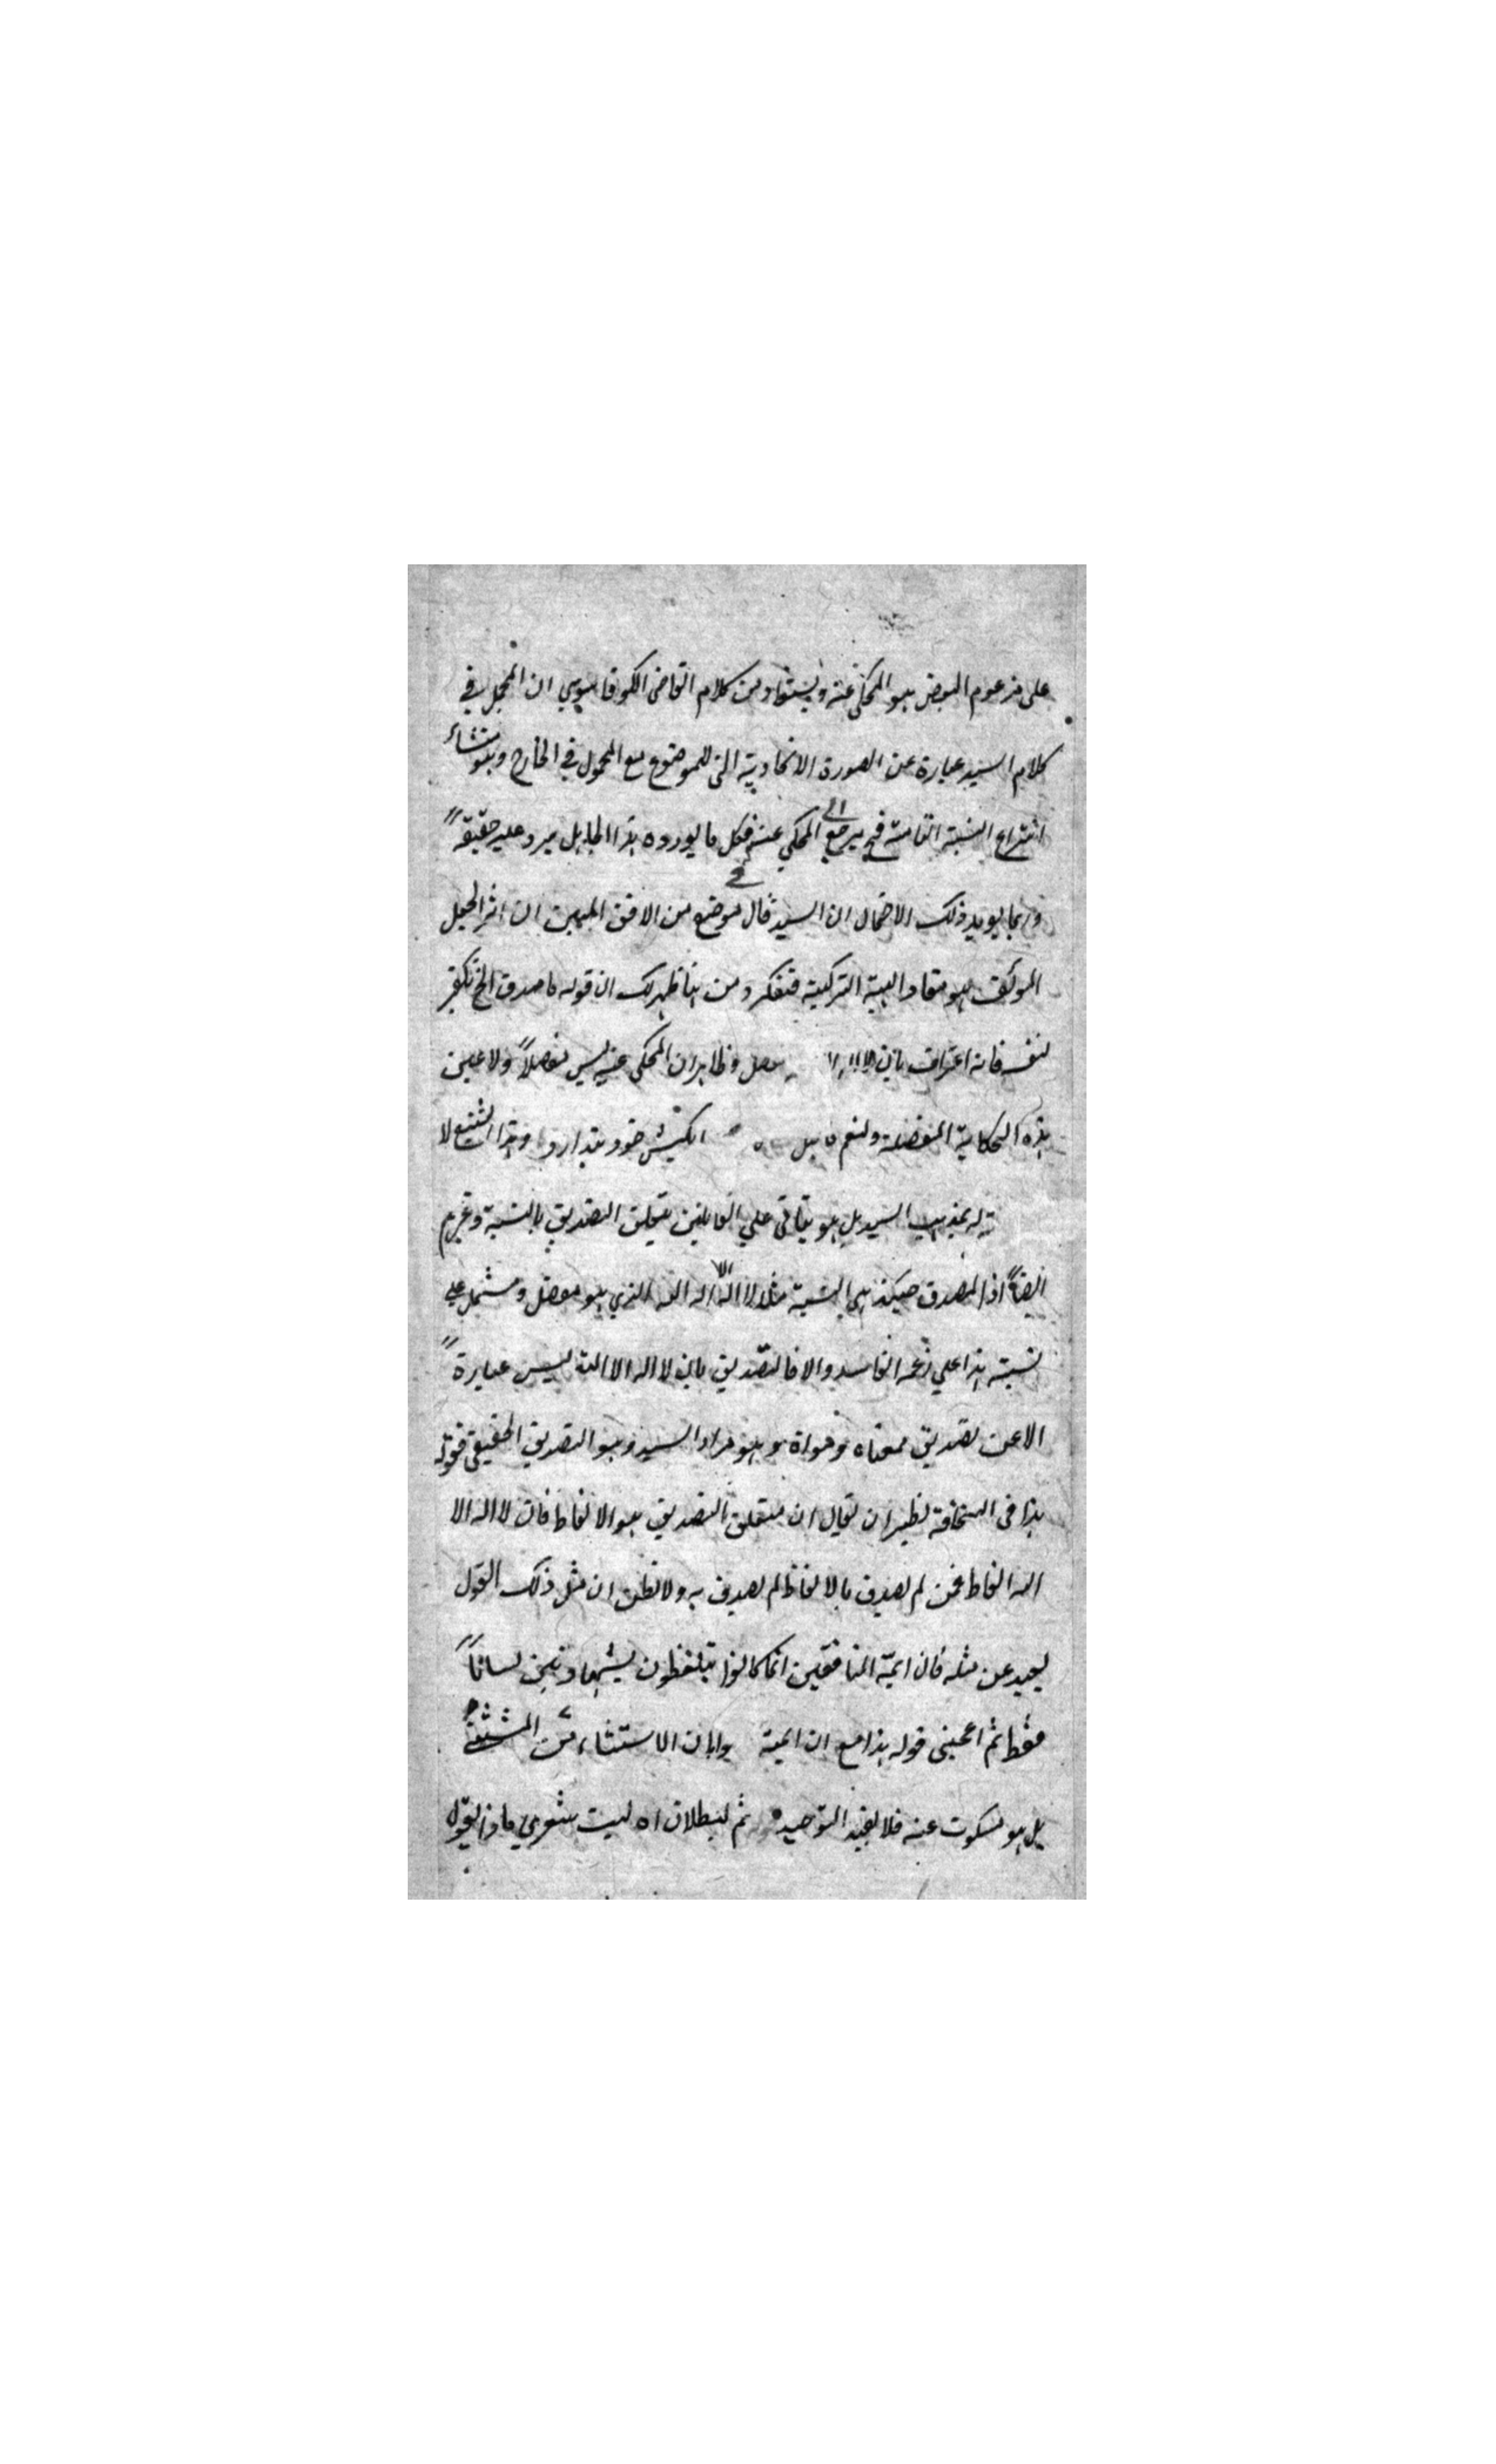 على مزعوم البعض هو المحكي عنه ويستفاد من كلام القاضي الكوفاموي ان المجمل في
كلام السيد عبارة عن الصورة الاتحادية التي للموضوع مع المحمول في الخارج وهو منشاء
انتزاع النسبة التامة فح يرجع الى المحكي عنه فكل ما يورده هذا الجاهل يرد عليه حقيقة
وربما يويد ذلك الاحتمال ان السيد قال في موضع من الافق المبين ان اثر الجعل
المولف هو مفاد الهيئة التركيبية فتفكر ومن هنا ظهر لك ان قوله ما صدق الخ تكفير
لنفسه فانه اعتراف بان وظاهر ان المحكي عنه ليس مفصلا ولا عين
هذه الحكاية المفصلة ولنعم بل وهذا التشنيع لا
له بمذهب السيد بل هو يتاتى علي القايلين بتعلق التصديق بالنسبة وغيرهم
ايضا اذ المصدق حينئذ هي النسبة مثلا لا اله الا الله الذي هو مفصل ومشتمل على
نسبة هذا علي زعمه الفاسد والا فالتصديق بان لا اله الا الله ليس عبارة
الا عن تصديق معناه وهو مراد السيد وهو التصديق الحقيقي فقوله
هذا في السخافة نظير ان يقال ان متعلق التصديق هو الالفاظ فان لا اله الا
الله الفاظ فمن لم يصدق بالالفاظ لم يصدق به ولا تظن ان مثل ذلك القول
بعيد عن مثله فان ايمة المنافقين انما كانوا يتلفظون لسانا
فقط ثم اعجبني قوله هذا مع ان ايمة ابان الاستثناء من المستثنى
بل هو مسكوت عنه فلا يفيد التوحيد ثم لبطلان اه ليت شعري ماذا يقول